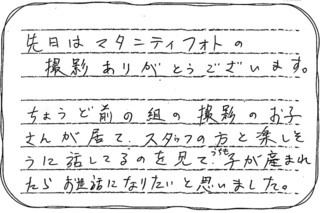 先日はマタニティフォトの
撮影ありがとうございます。
ちょうど前の組の撮影のお子
さんが居て、スタッフの方と楽しそ
うに話してるのを見て、うちも子が産まれ
たらお世話になりたいと思いました。